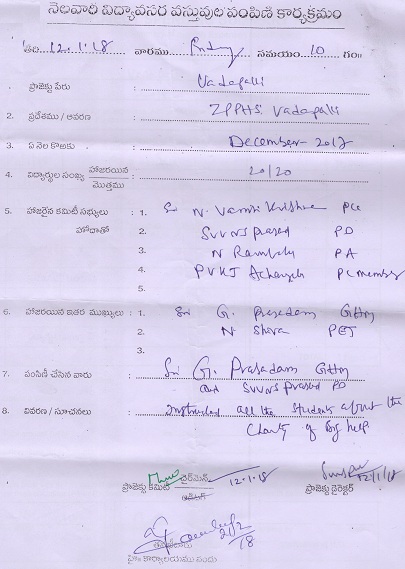 నెలవారి విద్యావసర వస్తువుల పంపిణి కార్యక్రమం
తేది 12.1.18 వారము సమయం 10 గం॥
ప్రాజెక్టు పేరు : Vadapalli
2. ప్రదేశము / ఆవరణ : ZPPHS. Vadapalli
3. ఏ నెల కొఱకు : December-2017
4. విద్యార్థుల సంఖ్య హాజరయిన / మొత్తము : 20/20
5. హాజరైన కమిటీ సభ్యులు : 1. Sri N. Vamsi Krishna PCC
హోదాతో 2. SVVNS prasad PD
3. N Rambabu PA
4. PVKJ PC member
5.
6. హాజరయిన ఇతర ముఖ్యులు : 1. Sri G. Prasadam
2. N Shiva PET
3.
7. పంపిణీ చేసిన వారు : Sri G. Prasadam
and SVVNS prasad PD
8. వివరణ / సూచనలు : Instructed all the Students about the
of help
ప్రాజెక్టు కమిటీ ఛైర్‌మెన్ 12.1.18 ప్రాజెక్టు డైరెక్టర్ 12/1/18
2/2/18